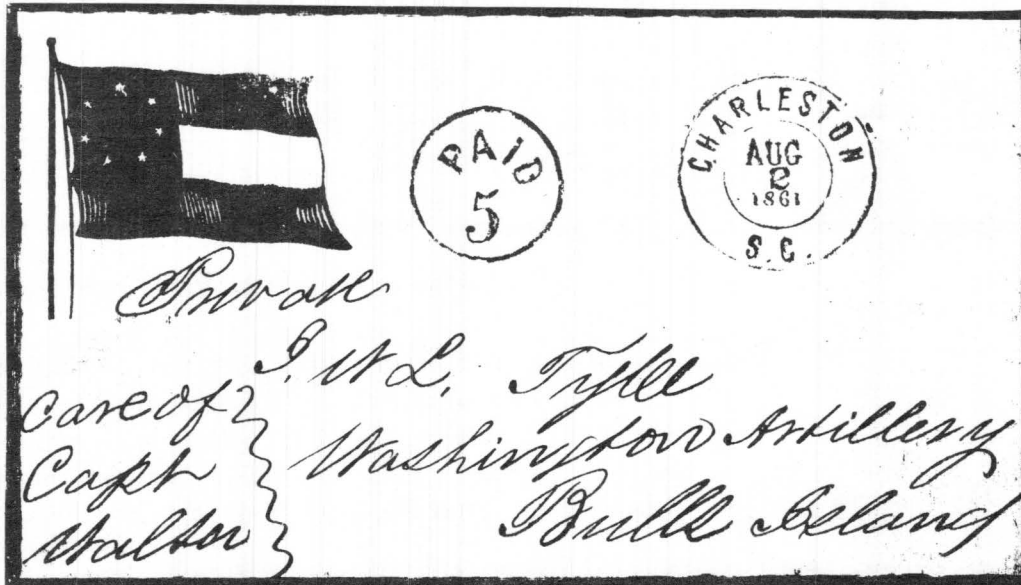 PAID
5
CHARLESTON
AUG
2
1861
S.C.
Private
J. W L.
Washington Artillery
Bulls Island
Care of
Capt
Walter